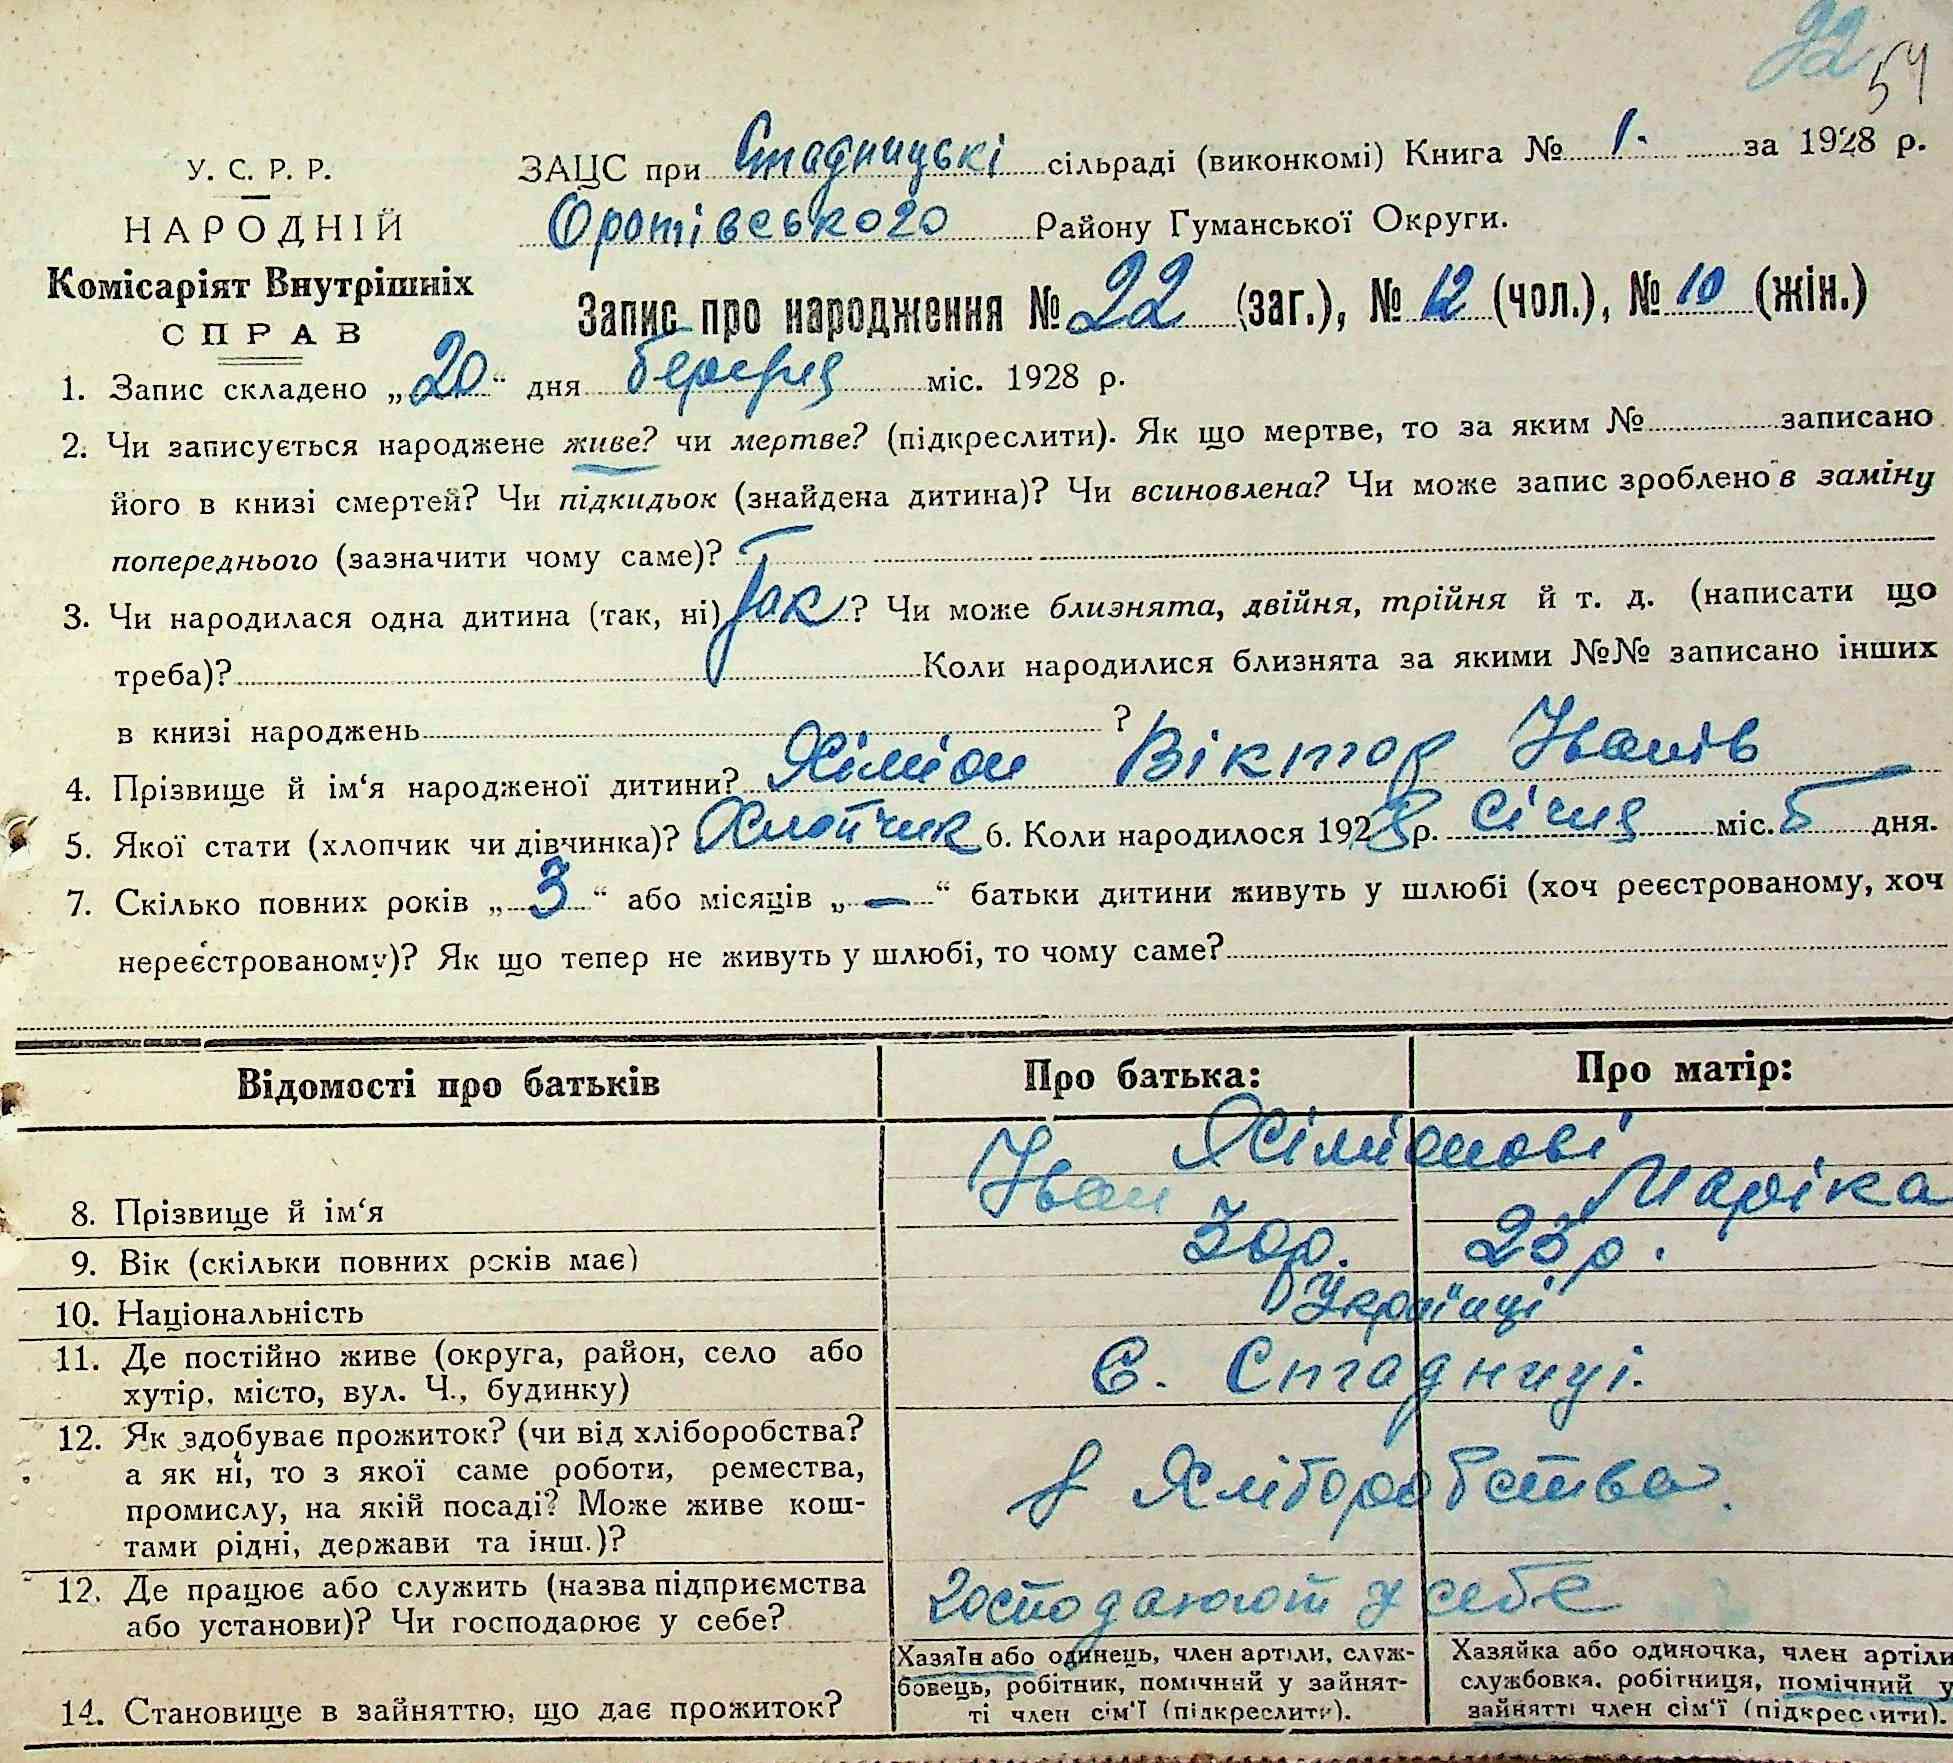 92
54
У. С. Р. Р.
НАРОДНІЙ
Комісаріят Внутрішніх
СПРАВ
ЗАЦС при Стадницькі сільраді (виконкомі) Книга № 1. за 1928 р.
Оротівського Району Гуманської Округи.
Запис про народження № 22 (заг.), № 12 (чол.), № 10 (жін.)
1. Запис складено „20“ дня березня міс. 1928 р.
2. Чи записується народжене живе? чи мертве? (підкреслити). Як що мертве, то за яким № записано
його в книзі смертей? Чи підкидьок (знайдена дитина)? Чи всиновлена? Чи може запис зроблено в заміну
попереднього (зазначити чому саме)?
3. Чи народилася одна дитина (так, ні) Так? Чи може близнята, двійня, трійня й т. д. (написати що
треба)? Коли народилися близнята за якими №№ записано інших
в книзі народжень ?
4. Прізвище й ім‘я народженої дитини? Хіміон Віктор Іванів
5. Якої стати (хлопчик чи дівчинка)? Хлопчик 6. Коли народилося 1928 р. січня міс. 5 дня.
7. Скілько повних років „3“ або місяців „—“ батьки дитини живуть у шлюбі (хоч реєстрованому, хоч
нереєстрованому)? Як що тепер не живуть у шлюбі, то чому саме?
Відомості про батьків Про батька: Про матір:
Хіміонові
8. Прізвище й ім‘я Іван Маріка
9. Вік (скільки повних років має) 30 р. 23 р.
10. Національність Українці
11. Де постійно живе (округа, район, село або
хутір, місто, вул. Ч., будинку) С. Стадниці.
12. Як здобуває прожиток? (чи від хліборобства?
а як ні, то з якої саме роботи, ремества,
промислу, на якій посаді? Може живе кош-
тами рідні, держави та інш.)? з Хліборобства.
12. Де працює або служить (назва підприємства
або установи)? Чи господарює у себе? господають у себе
14. Становище в зайняттю, що дає прожиток?
Хазяїн або одинець, член артіли, служ-
бовець, робітник, помічний у зайнят-
ті член сім'ї (підкреслити).
Хазяйка або одиночка, член артіли
службовка, робітниця, помічний у
зайнятті член сім'ї (підкреслити).